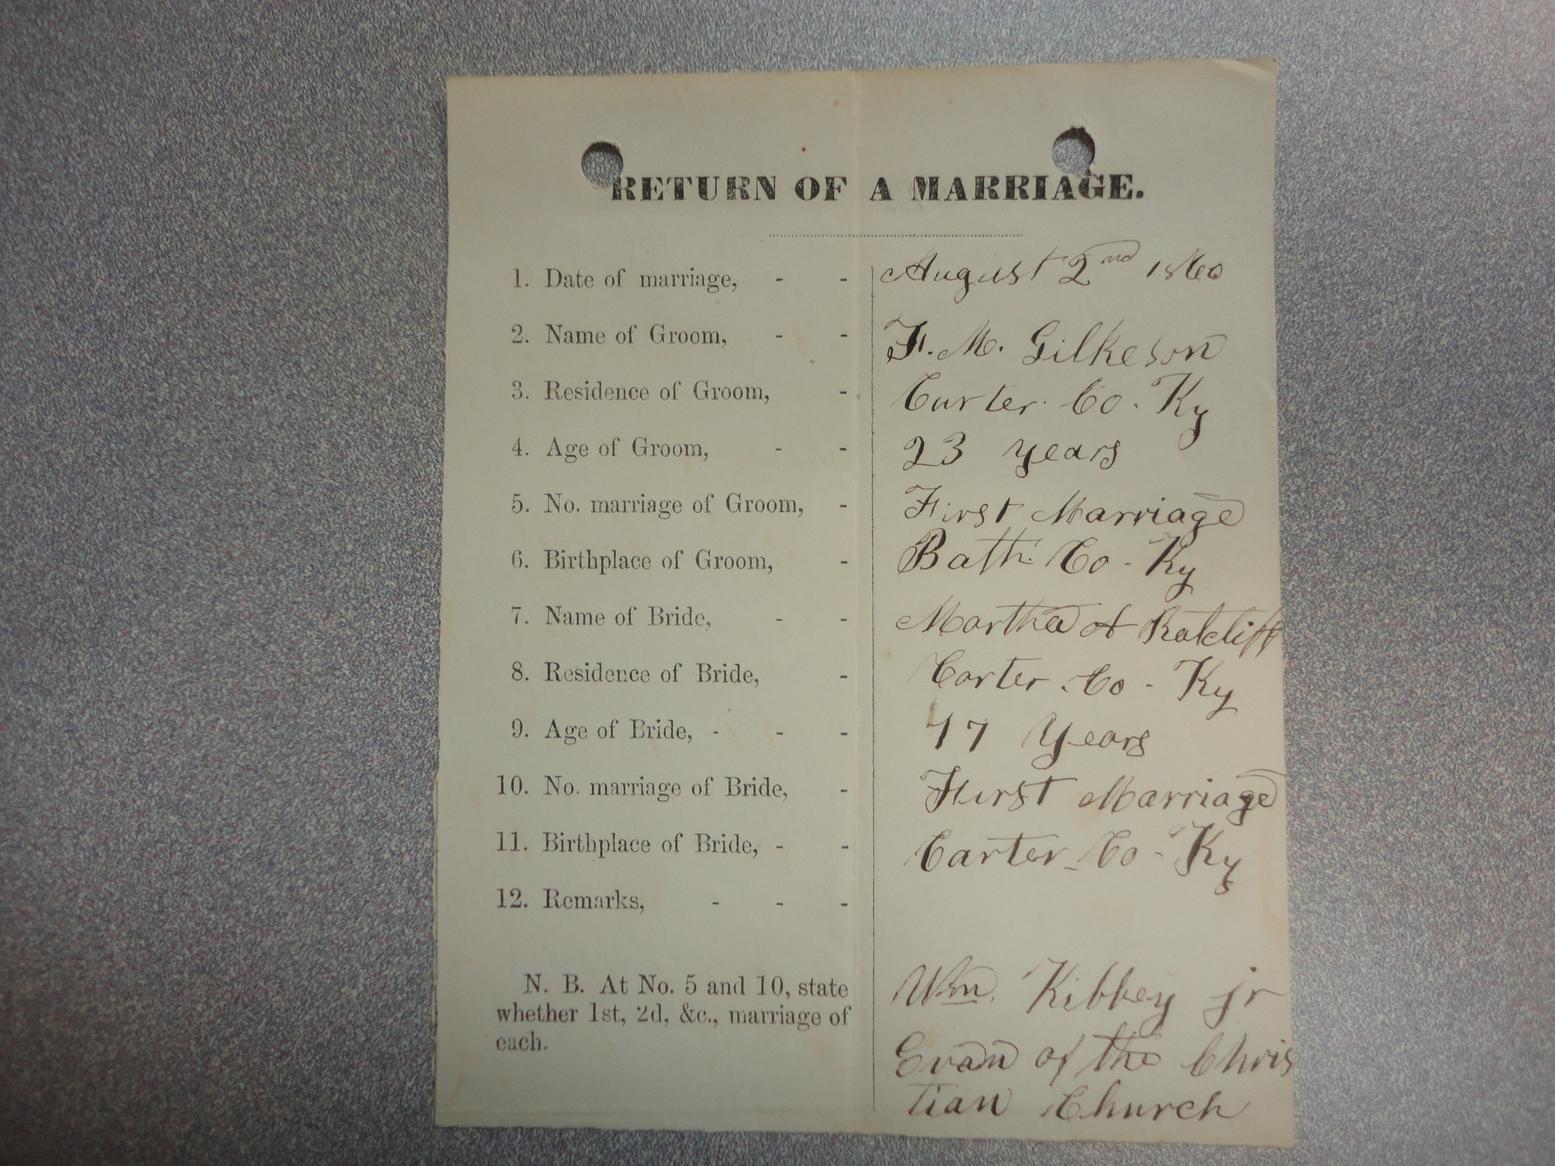 RETURN OF A MARRIAGE.
1. Date of marriage, - - August 2nd 1860
2. Name of Groom, - - F. M. Gilkeson
3. Residence of Groom, - Carter Co. Ky
4. Age of Groom, - - 23 years
5. No. marriage of Groom, - First Marriage
6. Birthplace of Groom, - Bath Co - Ky
7. Name of Bride, - - Martha A Ratcliff
8. Residence of Bride, - Carter Co - Ky
9. Age of Bride, - - - 47 Years
10. No. marriage of Bride, - First Marriage
11. Birthplace of Bride, - - Carter Co - Ky
12. Remarks, - - -
N. B. At No. 5 and 10, state
whether 1st, 2d, &c., marriage of
each.
Wm. Kibbey jr
Evan of the Chris
tian Church